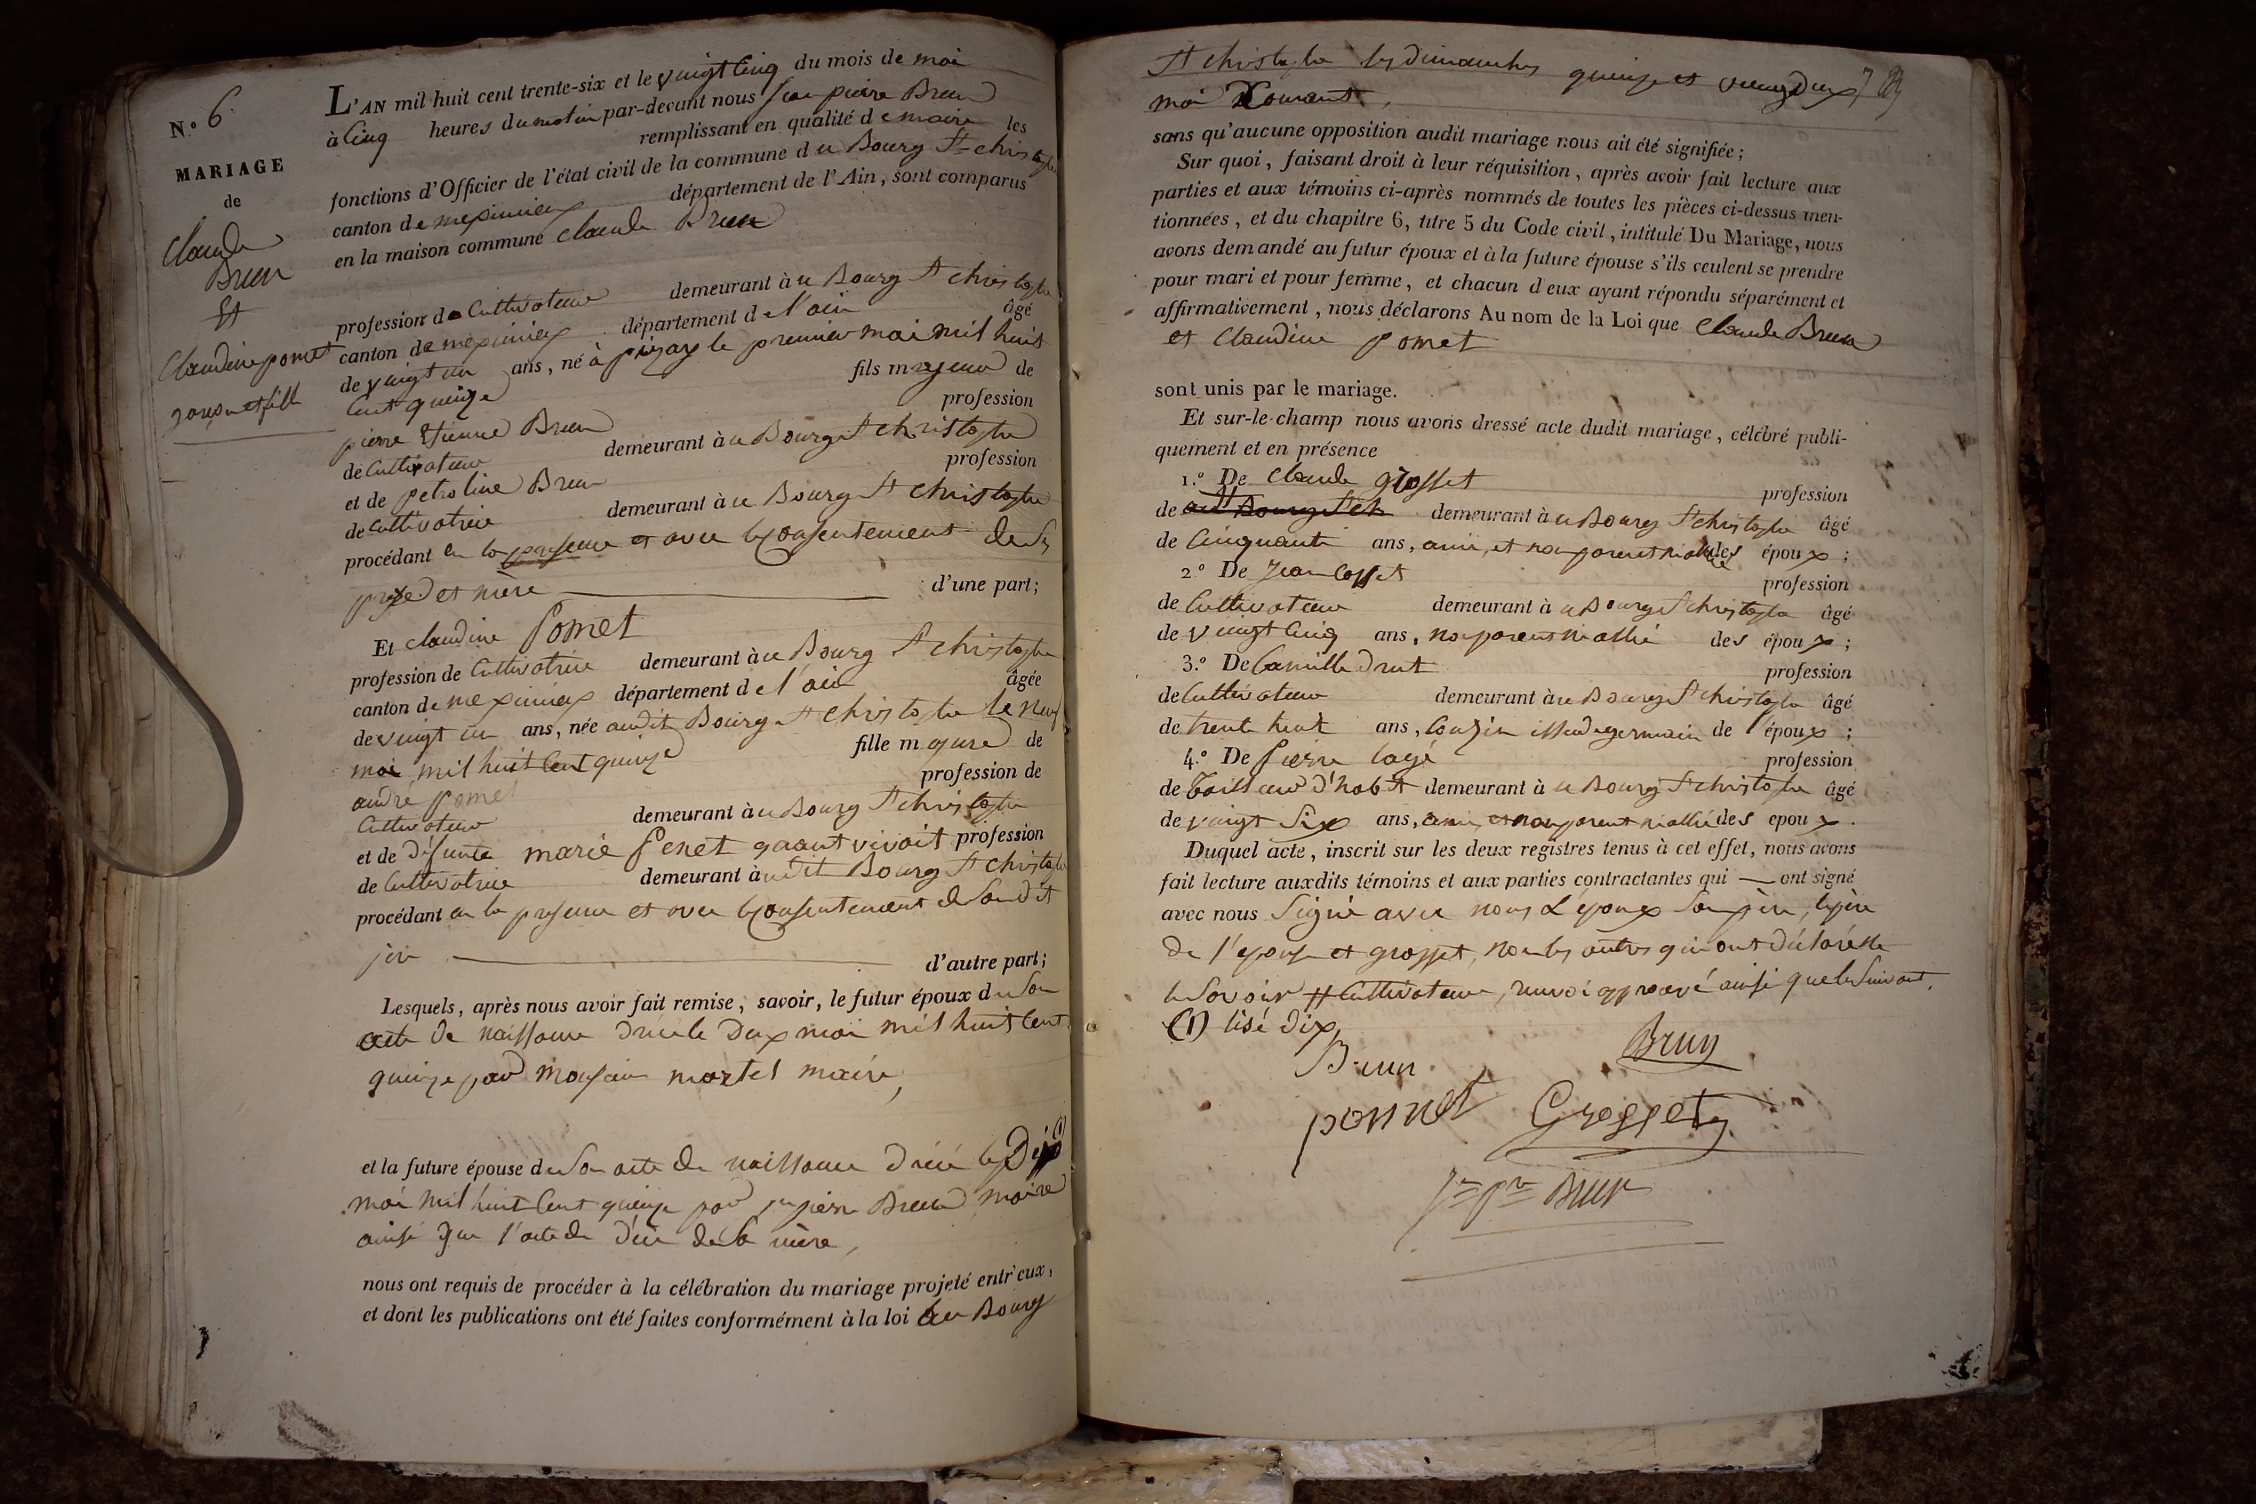 N.º 6.
MARIAGE
de
claude
Brun
Et
Claudine pomet
garçon et fille
L'AN mil huit cent trente-six et le vuingt Cinq du mois de mai
à Cinq heures du matin par-devant nous Jean pierre Brun
remplissant en qualité de maire les
fonctions d'Officier de l'état civil de la commune du Bourg St christophe
canton de meximieux département de l'Ain, sont comparus
en la maison commune claude Brun
profession de Cultivateur demeurant à u Bourg St christophe
canton de meximieux département de l'ain âgé
de vuingt un ans, né à pizay le premier mai mil huit
Cent quinze fils majeur de
pierre Etienne Brun profession
de Cultivateur demeurant à u Bourg St christophe
et de petroline Brun profession
de Cultivatrice demeurant à u Bourg St christophe
procédant en la presence et avec le Consentement de Ses
père et mère d'une part;
Et claudine Pomet
profession de Cultivatrice demeurant à u Bourg St christophe
canton de meximieux département de l'ain âgée
de vuingt un ans, née audit Bourg St christophe le neuf
mai mil huit Cent quinze fille majeure de
andré pomet profession de
Cultivateur demeurant à u Bourg St christophe
et de défunte marie Penet quant vivoit profession
de Cultivatrice demeurant à udit Bourg St christophe
procédant en la presence et avec le Consentement de Son dit
père d'autre part;
Lesquels, après nous avoir fait remise, savoir, le futur époux de Son
acte de naissance dréceé le deux mai mil huit Cent
quinze par Monsieur martel maire,
et la future épouse de Son acte de naissance dréceé le Dix (1)
mai mil huit Cent quinze par jn pierre Brun maire
ainsi que l'acte de décè de Sa mère,
nous ont requis de procéder à la célébration du mariage projeté entr'eux,
et dont les publications ont été faites conformément à la loi au Bourg
St christophe les dimanches quinze et vuingt deux
mai Courant,
sans qu'aucune opposition audit mariage nous ait été signifiée;
Sur quoi, faisant droit à leur réquisition, après avoir fait lecture aux
parties et aux témoins ci-après nommés de toutes les pièces ci-dessus men-
tionnées, et du chapitre 6, titre 5 du Code civil, intitulé Du Mariage, nous
avons demandé au futur époux et à la future épouse s'ils veulent se prendre
pour mari et pour femme, et chacun d eux ayant répondu séparément et
affirmativement, nous déclarons Au nom de la Loi que Claude Brun
et Claudine Pomet
sont unis par le mariage.
Et sur-le-champ nous avons dressé acte dudit mariage, célébré publi-
quement et en présence
1.º De Claude grosset profession
de au Bourg St ch demeurant à u Bourg St christophe âgé
de Cinquante ans, ami, et non parent ni allié des époux;
2.º De Jean Cosset profession
de Cultivateur demeurant à u Bourg St christophe âgé
de vuingt Cinq ans, non parent ni allié des époux;
3.º De Camille drut profession
de Cultivateur demeurant à u Bourg St christophe âgé
de trente huit ans, Cousin issu de germain de l'époux;
4.º De Pierre lagé profession
de Tailleur d'habit demeurant à u Bourg St christophe âgé
de vuingt Six ans, ami, et non parent ni allié des epoux.
Duquel acte, inscrit sur les deux registres tenus à cet effet, nous avons
fait lecture auxdits témoins et aux parties contractantes qui ont signé
avec nous Signé avec nous L'époux Son père, le père
de l'épouse et grosset, non les autres qui ont déclaré ne
le Savoir # Cultivateur, renvoi approuvé ainsi que le Suivant.
(1) lisé dix,
Brun Brun
ponnet Grosset
Jn Pre Brun